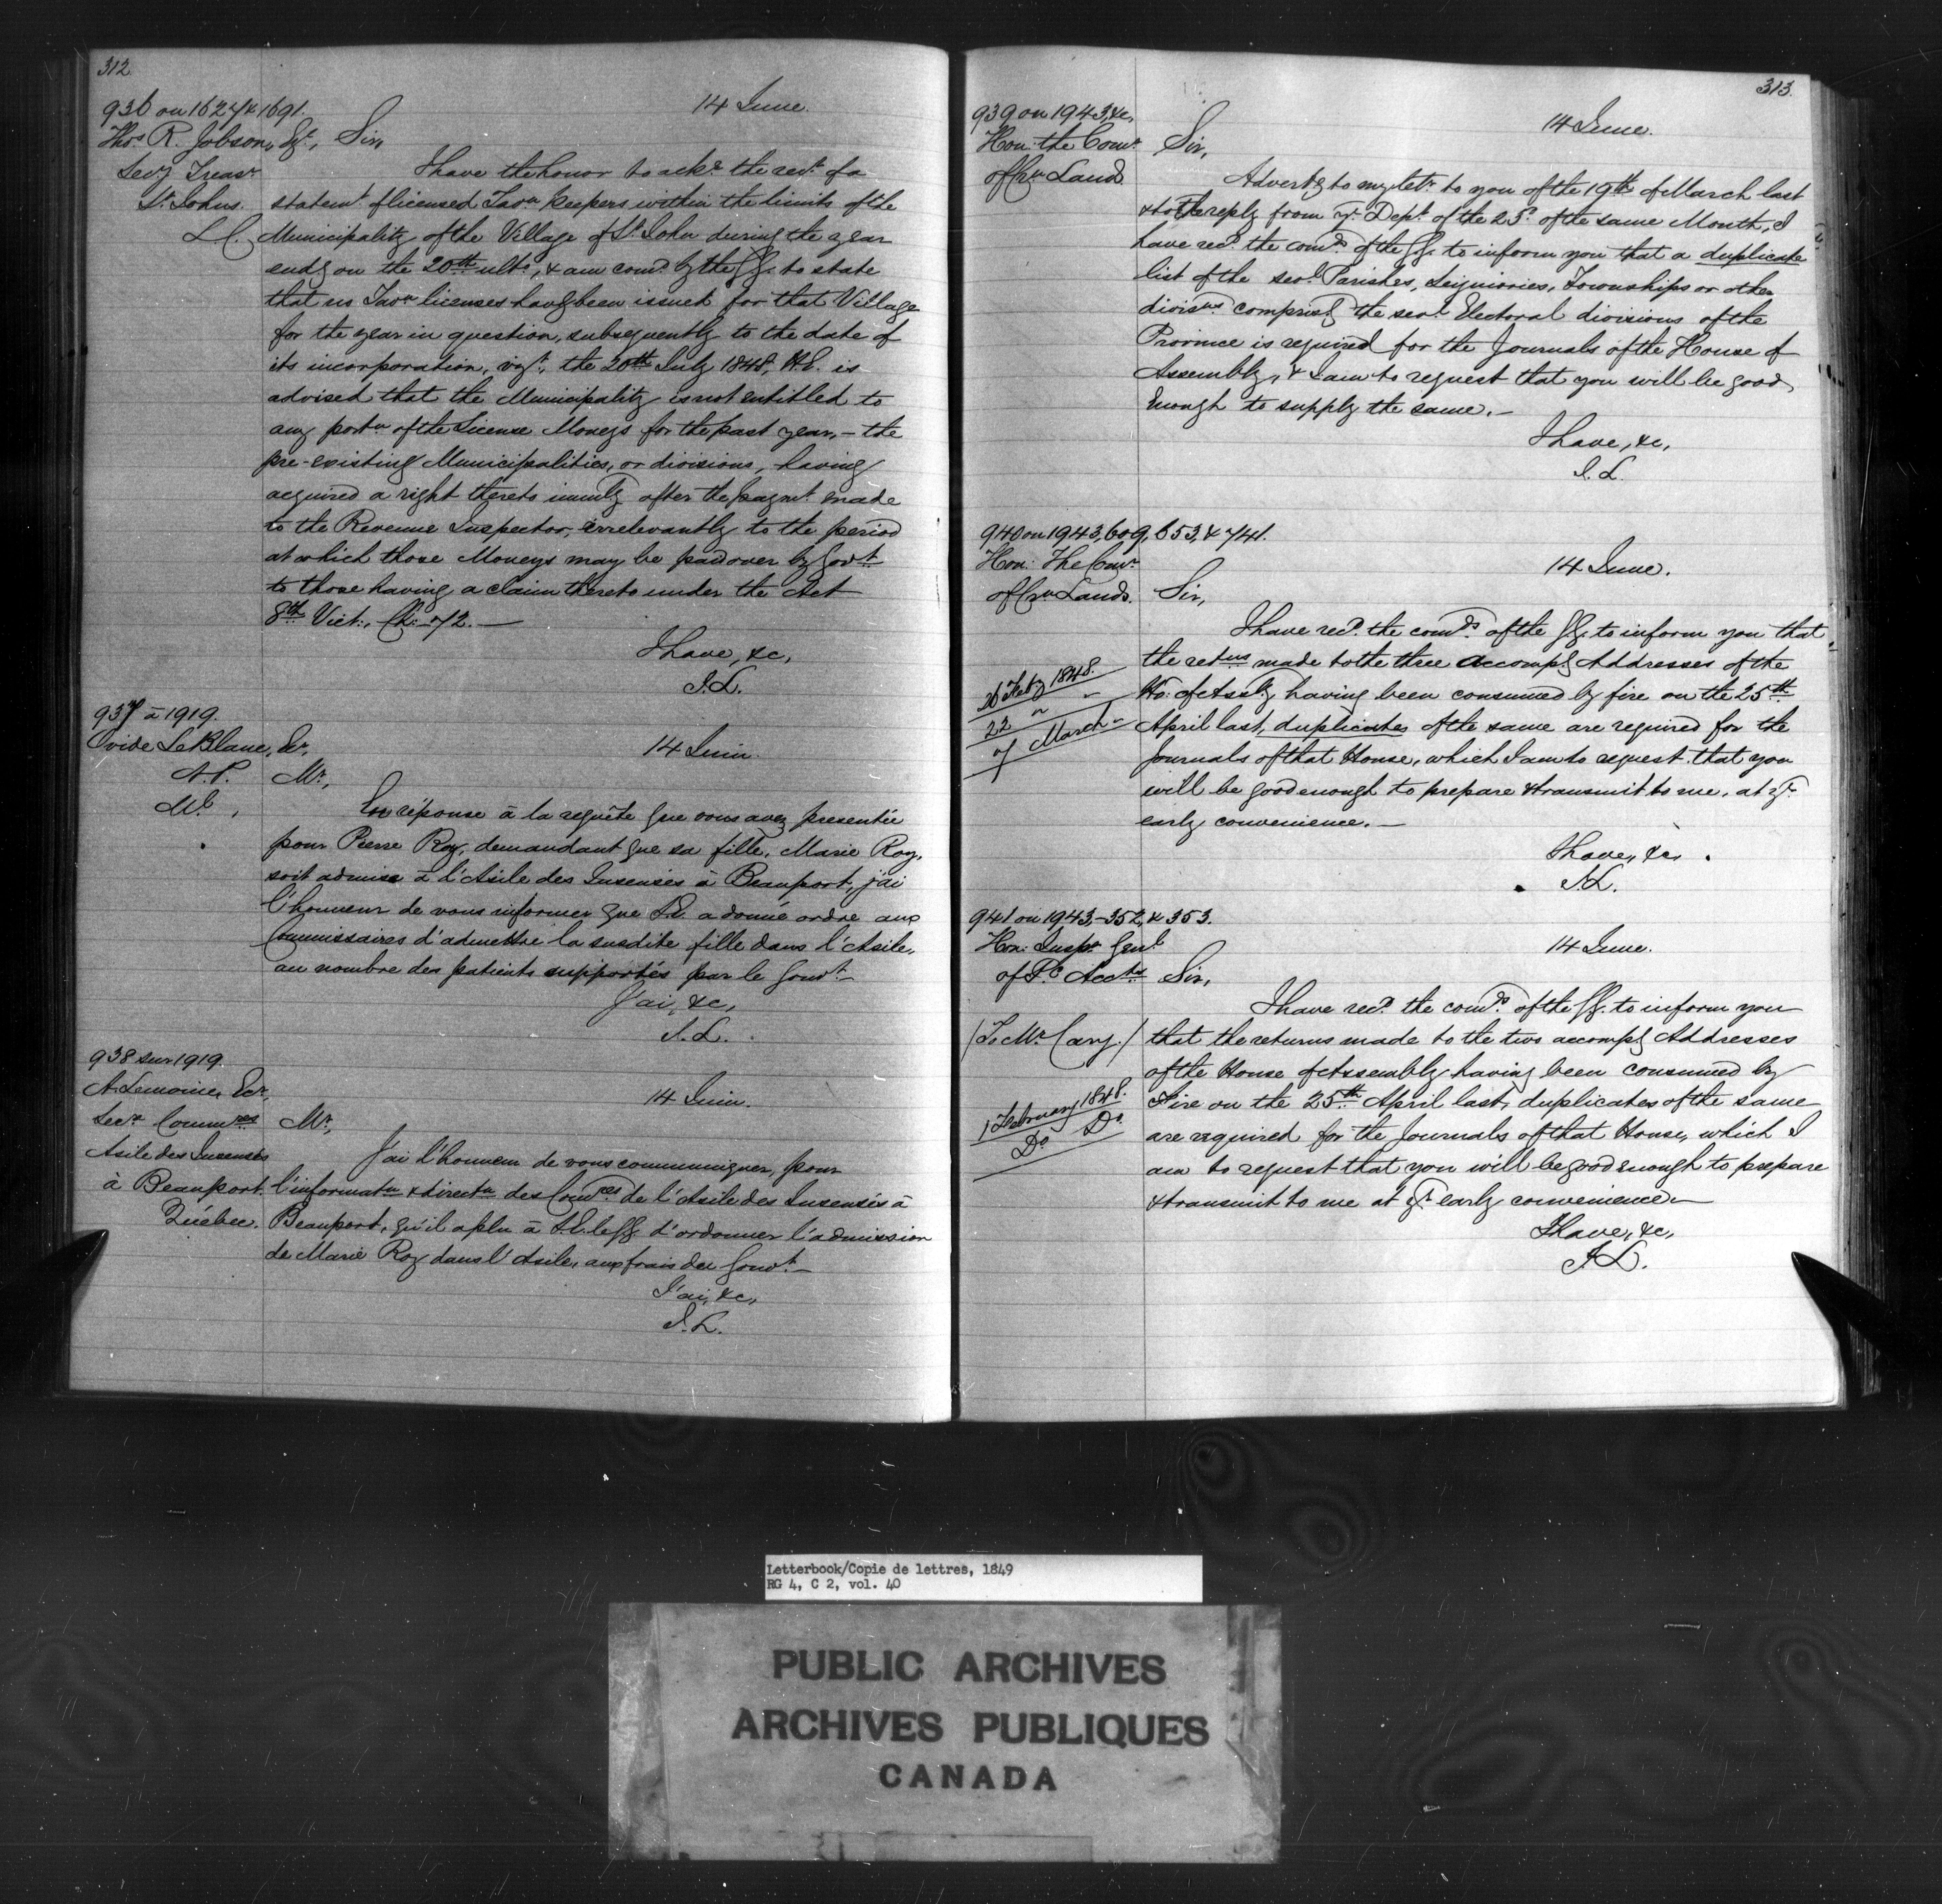 312
936 on 1627 & 1691.
14 June.
Thos R. Jobson, Esqr, Sir,
Secy Treasr
St. Johns.
L C.
I have the honor to acke the rect of a
statemt of licensed Tavn keepers within the limits of the
Municipality of the Village of St. John during the year
endg on the 20th ulto, & am comd by the GG. to state
that no Tavn licenses havg been issued for that Village
for the year in question, subsequently to the date of
its incorporation, vizt, the 20th July 1848, H.E. is
advised that the Municipality is not entitled to
any portn of the License Moneys for the past year, – the
pre-existing Municipalities, or divisions, having
acquired a right thereto immly after the paymt made
to the Revenue Inspector, irrelevantly to the period
at which those Moneys may be paid over by Govt
to those having a claim thereto under the Act
8th Vict:, Ch: 72. —
I have, &c,
J.L.
937 à 1919.
Ovide LeBlanc, Ecr,
14 Juin.
N.P.
Ml,
Mr,
En réponse à la requête que vous avez presentée
pour Pierre Roy, demandant que sa fille, Marie Roy,
soit admise à l'Asile des Insensés à Beauport, j'ai
l'honneur de vous informer que S.E. a donné ordre aux
Commissaires d'admettre la susdite fille dans l'Asile,
au nombre des patients supportés par le Gouvt –
J'ai, &c,
J.L.
938 sur 1919.
A. Lemoine, Ecr,
14 Juin.
Secr Commres
Asile des Insensés
à Beauport.
Québec.
Mr,
J'ai l'honneur de vous communiquer, pour
l'informatn & directn des Comres de l'Asile des Insensés à
Beauport, qu'il a plu à S.E. le GG. d'ordonner l'admission
de Marie Roy dans l'Asile, aux frais du Gouvt –
J'ai, &c,
J.L.
313.
939 on 1943, &c,
14 June.
Hon: the Comr
of Crn Lands
Sir,
Advertg to my letr to you of the 19th of March last
& to the reply from yr Dept of the 23d of the same Month, I
have recd the comds of the GG. to inform you that a duplicate
list of the sevl Parishes, Seigniories, Townships or other
divisns comprisg the sevl Electoral divisions of the
Province is required for the Journals of the House of
Assembly, & I am to request that you will be good
enough to supply the same. –
I have, &c,
J.L.
940 on 1943, 609, 653, & 741.
Hon: The Comr
of Crn Lands.
14 June.
Sir,
I have recd the comds of the GG. to inform you that
the retns made to the three accompg Addresses of the
Ho: of Assly having been consumed by fire on the 25th
April last, duplicates of the same are required for the
Journals of that House, which I am to request that you
will be good enough to prepare & transmit to me, at yr
early convenience. –
26 Feby 1848.
22 " "
7 March "
I have, &c,
J.L.
941 on 1943, – 352, & 353.
Hon: Inspr Genl
of Pc Accts
14 June.
Sir,
/To Mr. Cary./
I have recd the comds of the GG. to inform you
that the returns made to the two accompg Addresses
of the House of Assembly having been consumed by
Fire on the 25th April last, duplicates of the same
are required for the Journals of that House, which I
am to request that you will be good enough to prepare
& transmit to me at yr early convenience. –
1 February 1848.
Do Do
I have, &c,
J.L.
Letterbook/Copie de lettres, 1849
RG 4, C 2, vol. 40
PUBLIC ARCHIVES
ARCHIVES PUBLIQUES
CANADA